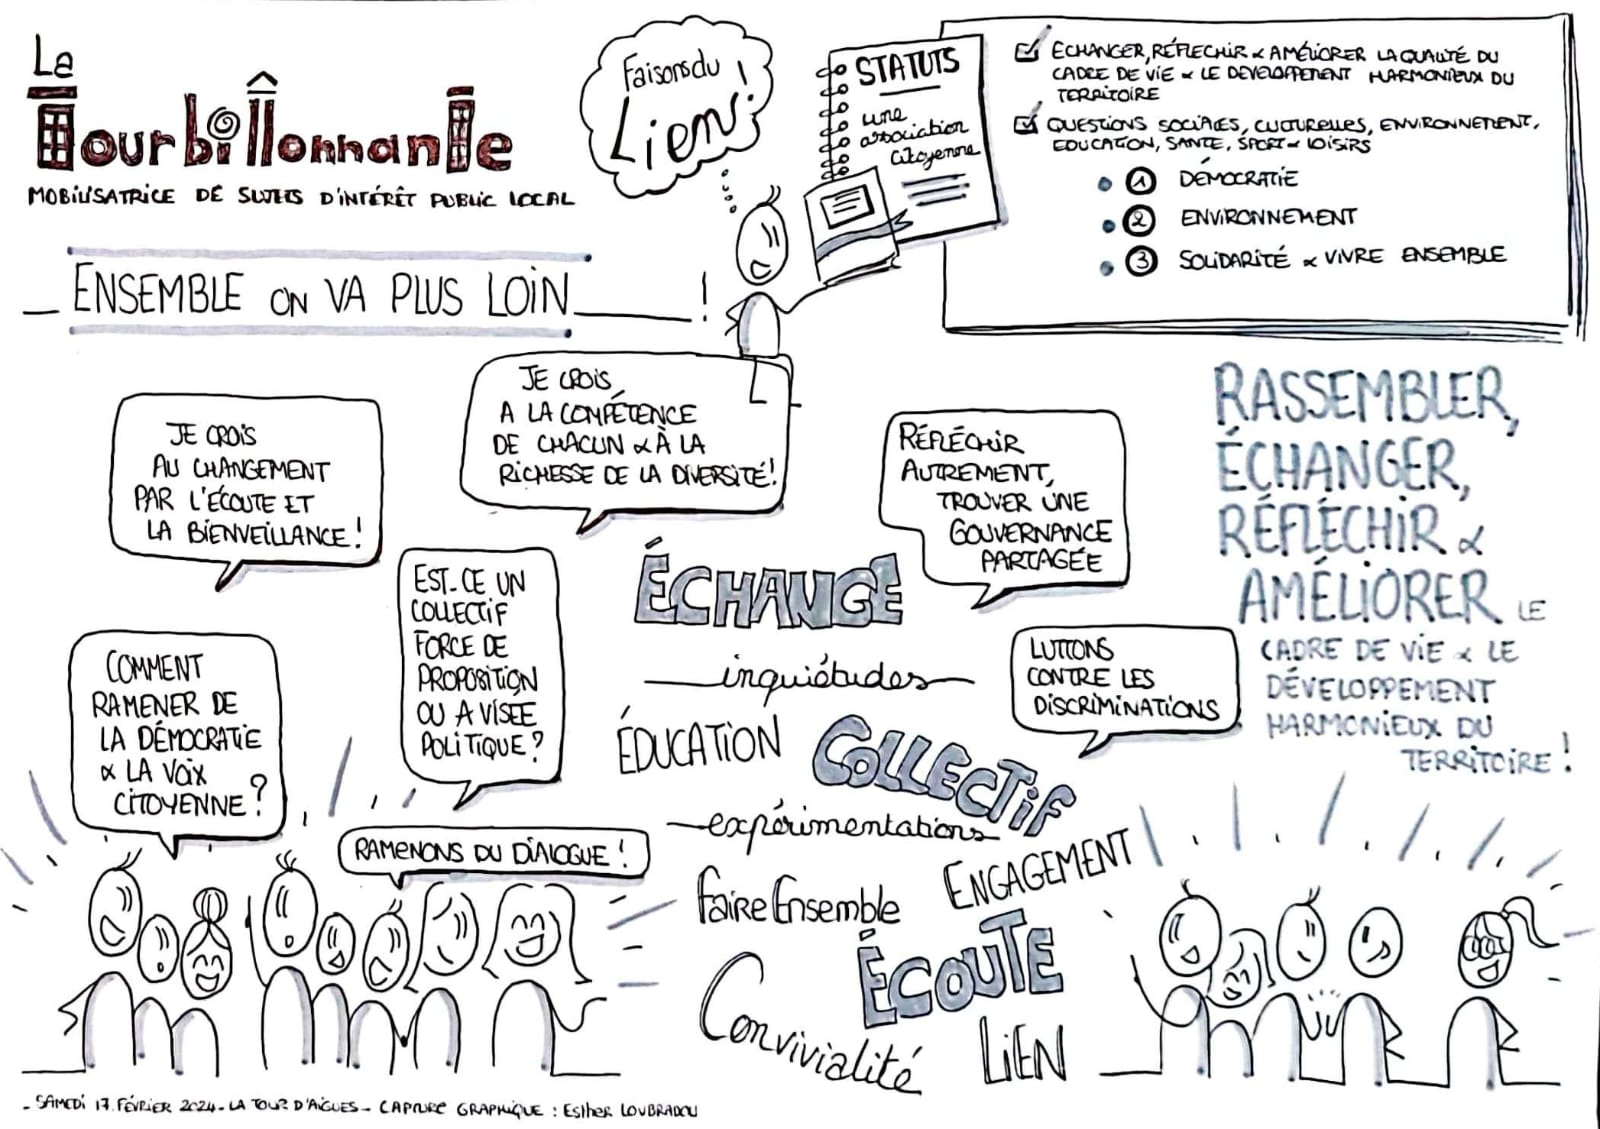 La
Tourbillonnante
MOBILISATRICE DE SUJETS D'INTÉRÊT PUBLIC LOCAL
ENSEMBLE ON VA PLUS LOIN !
Faisons du
Lien !
STATUTS
une
association
citoyenne
ECHANGER, RÉFLECHIR & AMÉLIORER LA QUALITÉ DU
CADRE DE VIE & LE DEVELOPPEMENT HARMONIEUX DU
TERRITOIRE
QUESTIONS SOCIALES, CULTURELLES, ENVIRONNEMENT,
EDUCATION, SANTE, SPORT & LOISIRS
1 DÉMOCRATIE
2 ENVIRONNEMENT
3 SOLIDARITÉ & VIVRE ENSEMBLE
JE CROIS
AU CHANGEMENT
PAR L'ÉCOUTE ET
LA BIENVEILLANCE !
JE CROIS
A LA COMPÉTENCE
DE CHACUN & À LA
RICHESSE DE LA DIVERSITÉ !
RÉFLÉCHIR
AUTREMENT,
TROUVER UNE
GOUVERNANCE
PARTAGÉE
RASSEMBLER,
ÉCHANGER,
RÉFLÉCHIR &
AMÉLIORER LE
CADRE DE VIE & LE
DÉVELOPPEMENT
HARMONIEUX DU
TERRITOIRE !
COMMENT
RAMENER DE
LA DÉMOCRATIE
& LA VOIX
CITOYENNE ?
EST-CE UN
COLLECTIF
FORCE DE
PROPOSITION
OU A VISEE
POLITIQUE ?
RAMENONS DU DIALOGUE !
LUTTONS
CONTRE LES
DISCRIMINATIONS
ÉCHANGE
inquiétudes
ÉDUCATION
COLLECTIF
expérimentations
Faire Ensemble
ENGAGEMENT
ÉCOUTE
Convivialité
LIEN
- SAMEDI 17 FÉVRIER 2024 - LA TOUR D'AIGUES - CAPTURE GRAPHIQUE : Esther LOUBRADOU